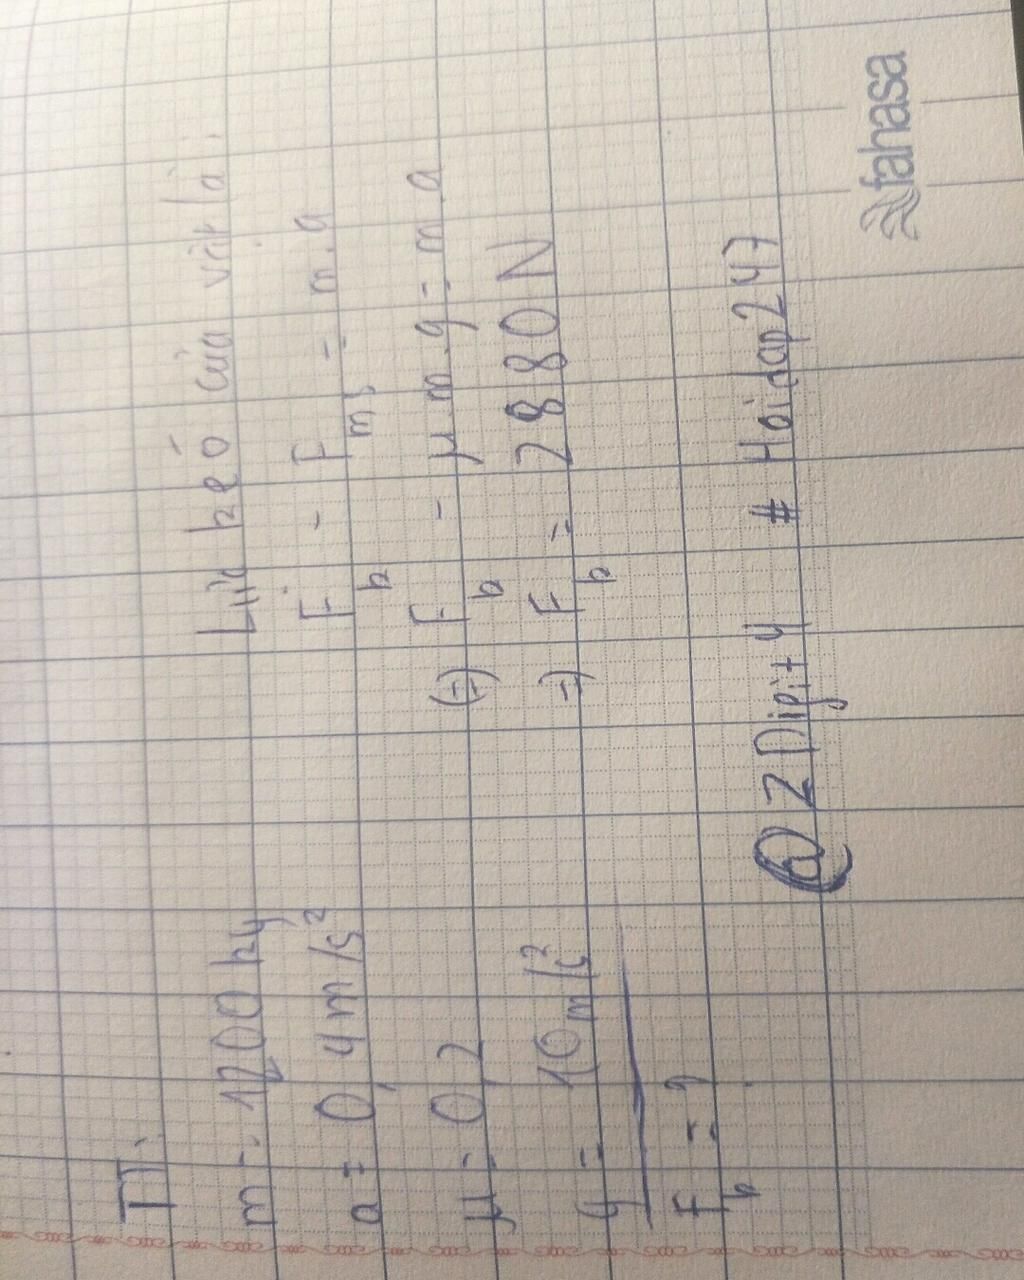 TT:
m = 1200 kg
a = 0,4 m/s²
µ = 0,2
g = 10 m/s²
F k = ?
Lực kéo của vật là:
F k - F ms = m.a
(=) F k - µ.m.g = m.a
=) F k = 2880 N
@2Digit4 # Hoidap247
fahasa